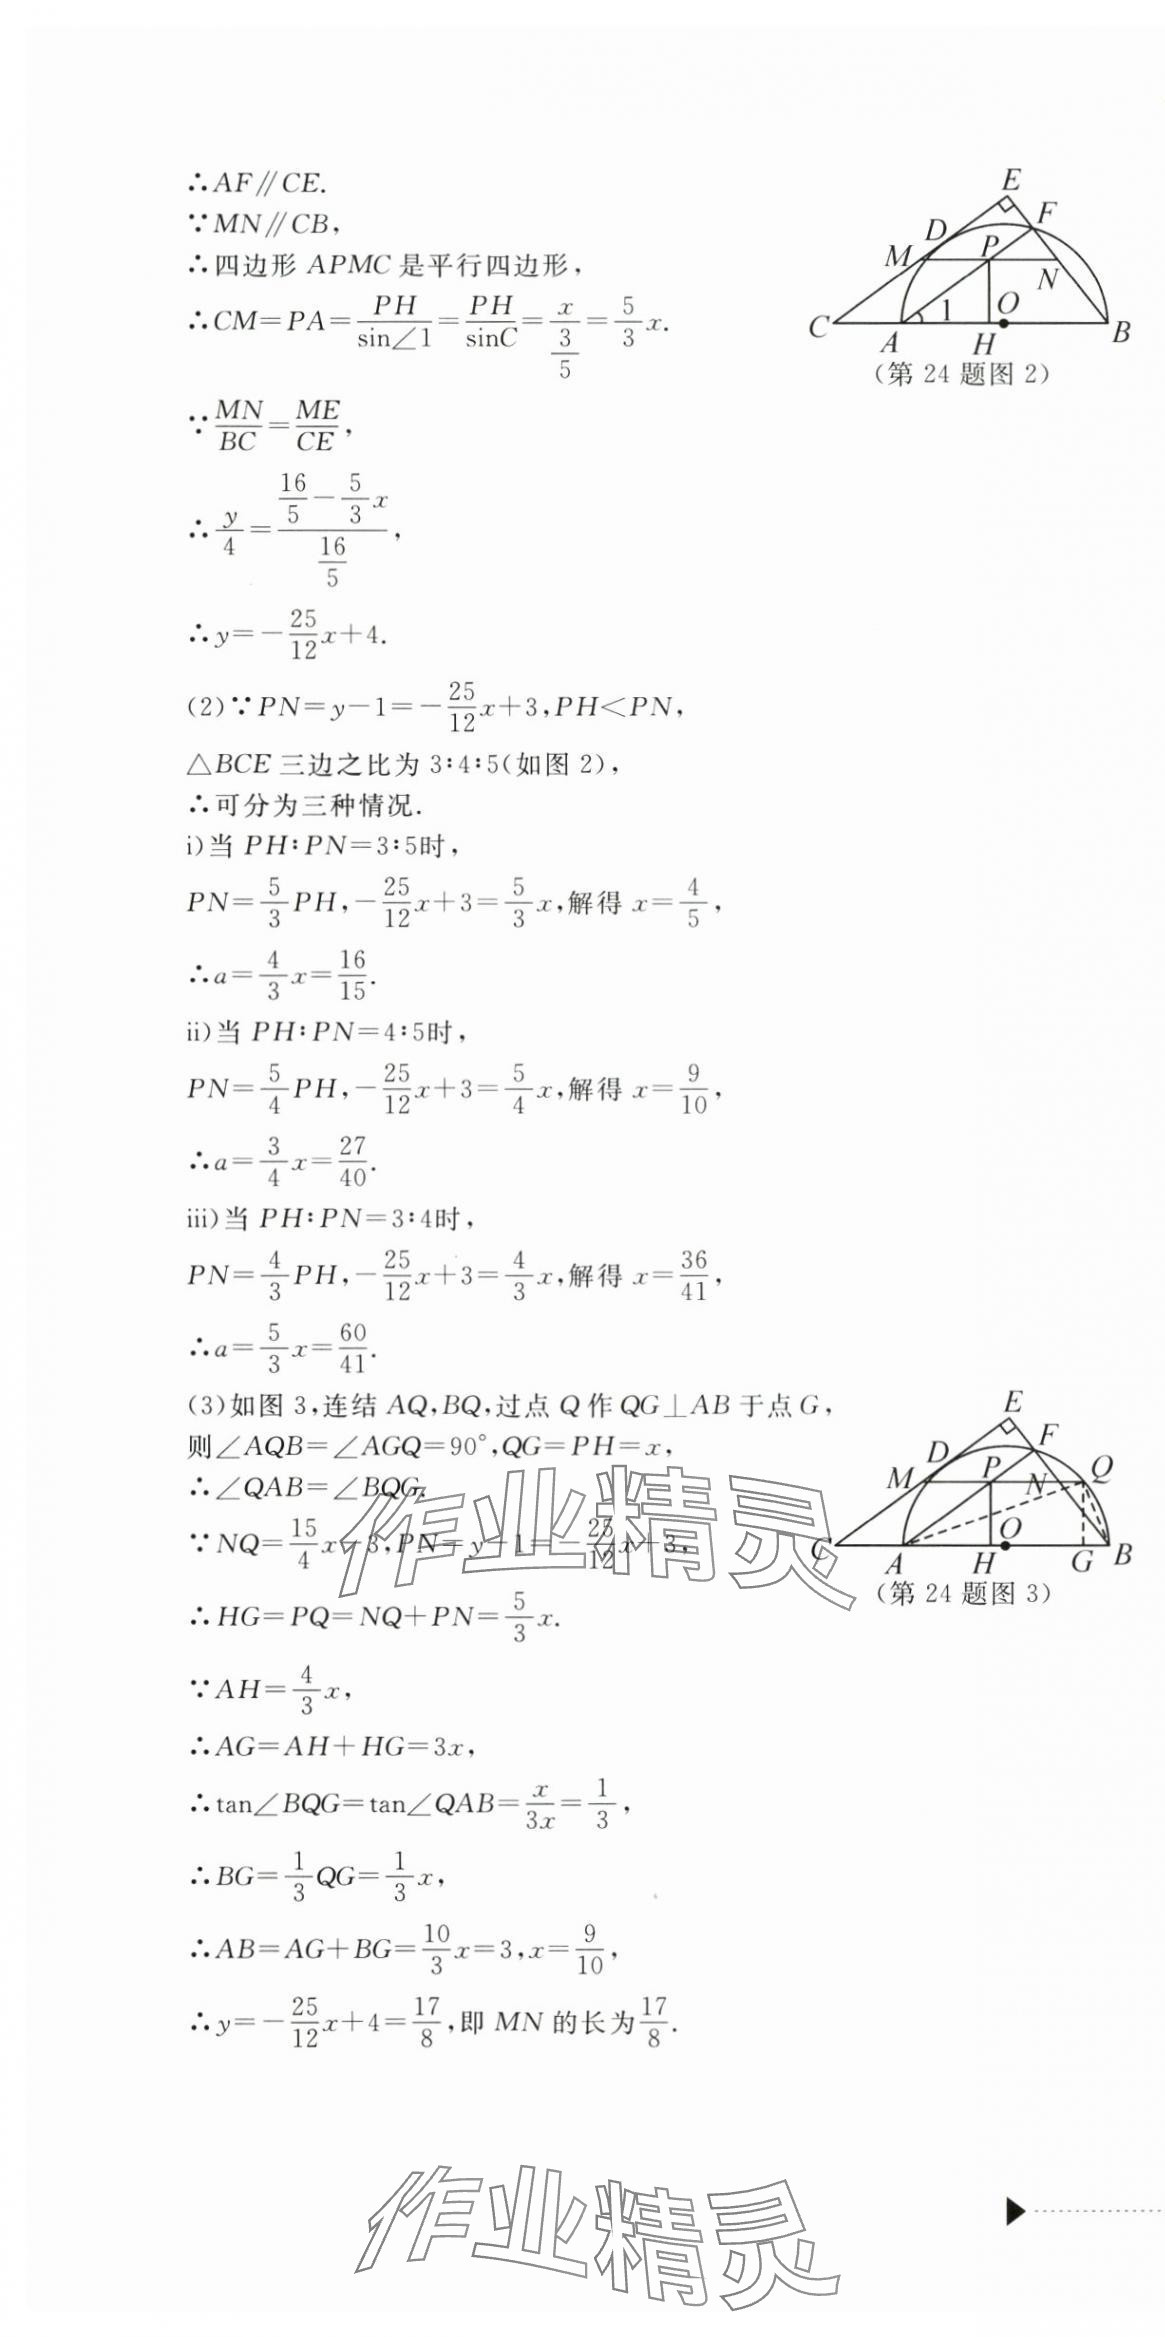 ∴AF∥CE.
∵MN∥CB,
∴四边形 APMC 是平行四边形,
∴CM=PA=PH/sin∠1=PH/sinC=x/(3/5)=5/3 x.
∵MN/BC=ME/CE,
∴y/4=(16/5-5/3 x)/(16/5),
∴y=-25/12 x+4.
(2)∵PN=y-1=-25/12 x+3,PH<PN,
△BCE 三边之比为 3∶4∶5(如图 2),
∴可分为三种情况.
i)当 PH∶PN=3∶5时,
PN=5/3 PH,-25/12 x+3=5/3 x,解得 x=4/5,
∴a=4/3 x=16/15.
ii)当 PH∶PN=4∶5时,
PN=5/4 PH,-25/12 x+3=5/4 x,解得 x=9/10,
∴a=3/4 x=27/40.
iii)当 PH∶PN=3∶4时,
PN=4/3 PH,-25/12 x+3=4/3 x,解得 x=36/41,
∴a=5/3 x=60/41.
(3)如图 3,连结 AQ,BQ,过点 Q 作 QG⊥AB 于点 G,
则∠AQB=∠AGQ=90°,QG=PH=x,
∴∠QAB=∠BQG.
∵NQ=15/4 x-3,PN=y-1=-25/12 x+3,
∴HG=PQ=NQ+PN=5/3 x.
∵AH=4/3 x,
∴AG=AH+HG=3x,
∴tan∠BQG=tan∠QAB=x/3x=1/3,
∴BG=1/3 QG=1/3 x,
∴AB=AG+BG=10/3 x=3,x=9/10,
∴y=-25/12 x+4=17/8,即 MN 的长为17/8.
E
F
D
M
P
N
1
O
C
A
H
B
(第 24 题图 2)
E
F
D
M
P
N
Q
O
C
A
H
G
B
(第 24 题图 3)
作业精灵
作业精灵